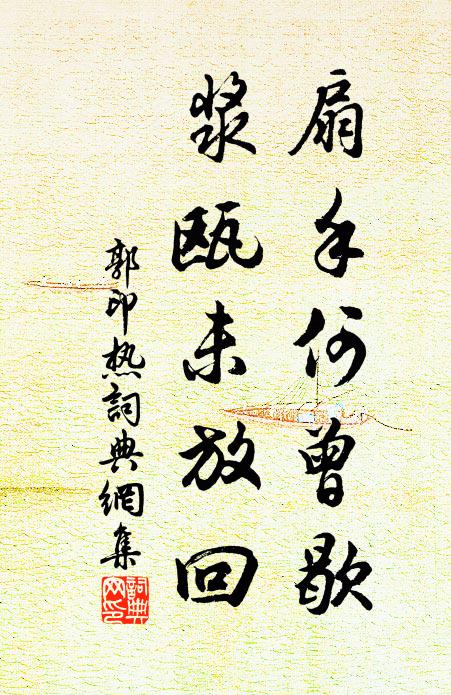 扇手何曾歇
漿甌未放回
郭印热詞典網集
詞典网印